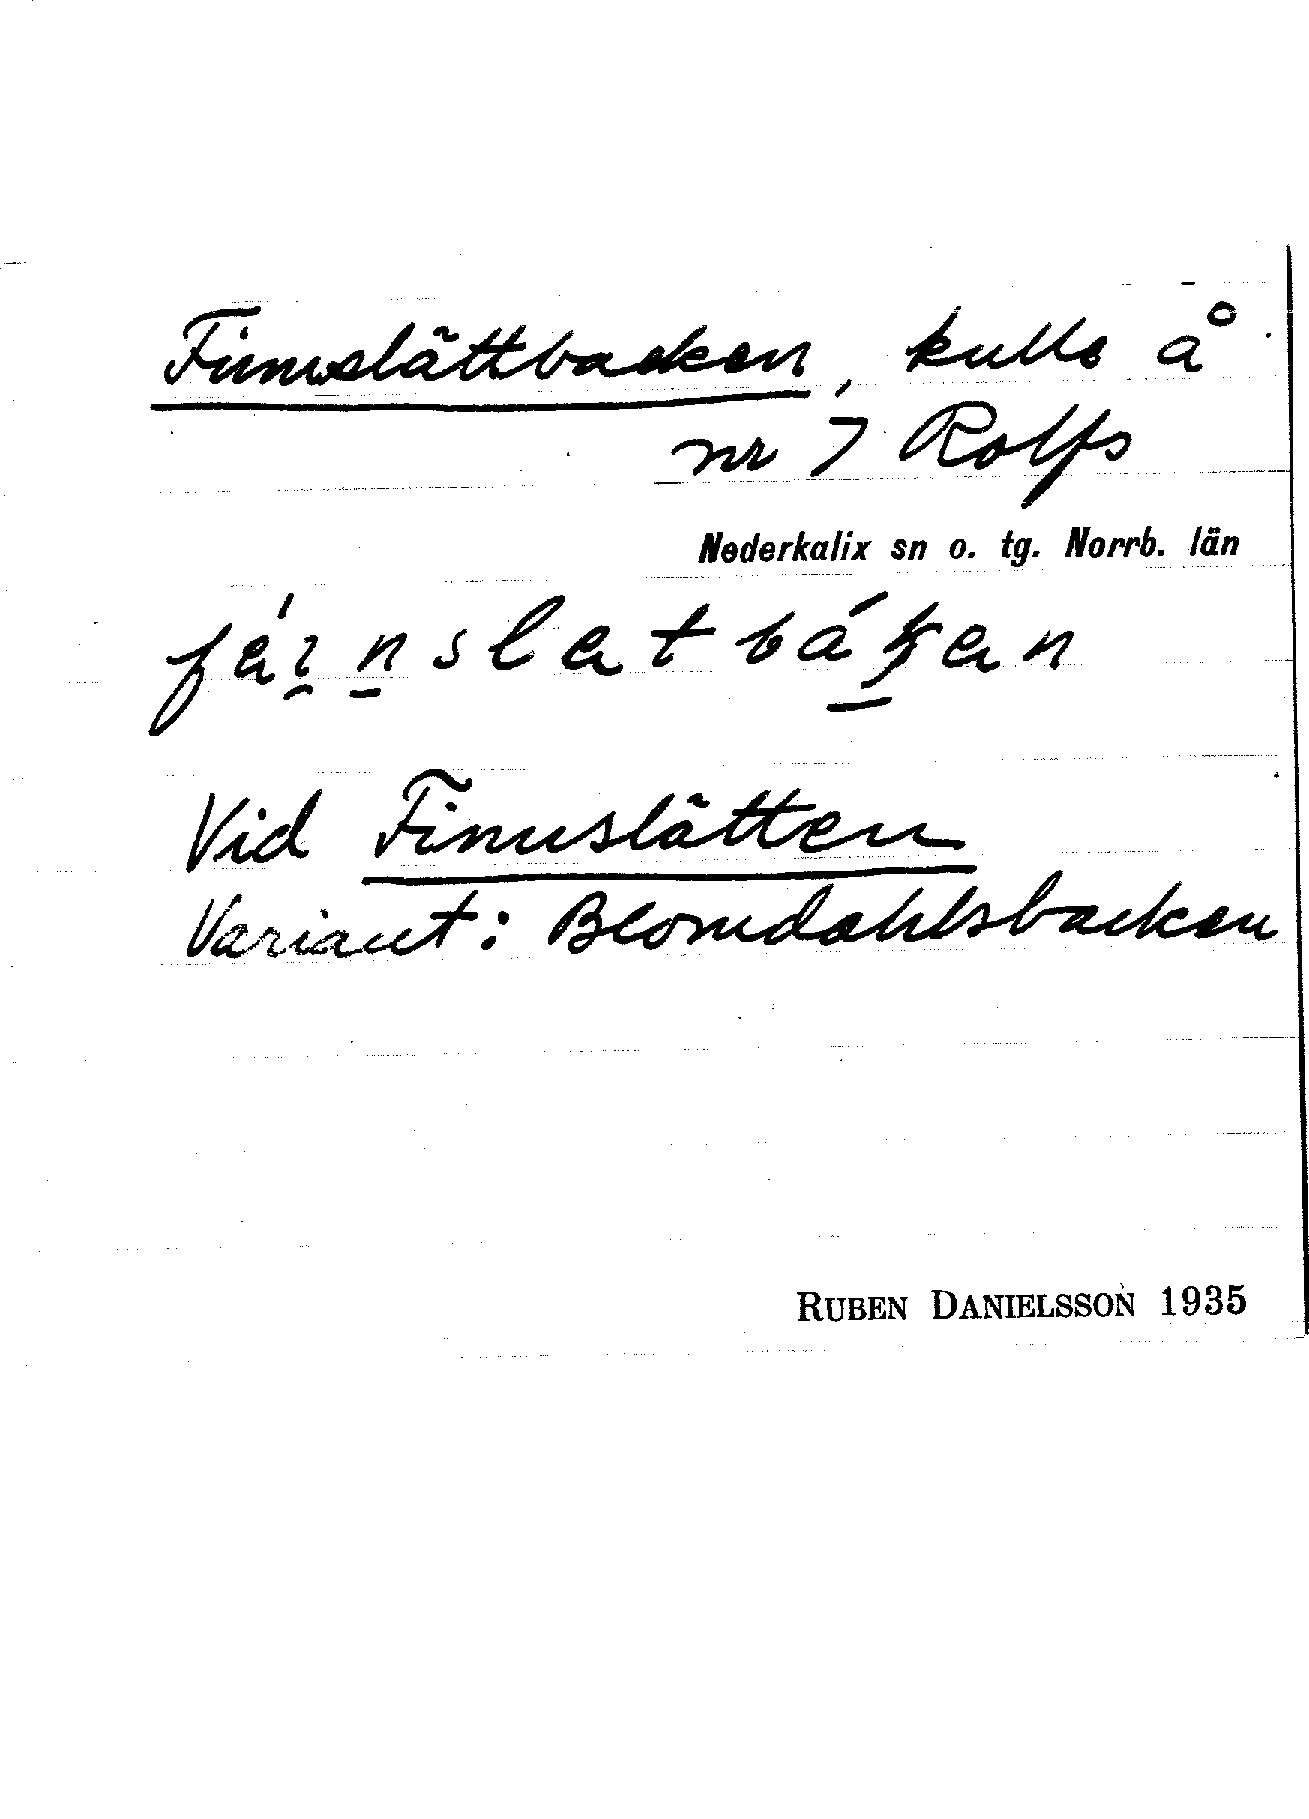 Finnslättbacken, kulle å
nr 7 Rolfs
Nederkalix sn o. tg. Norrb. län
Vid Finnslätten
Variant: Blomdahlsbacken
RUBEN DANIELSSON 1935